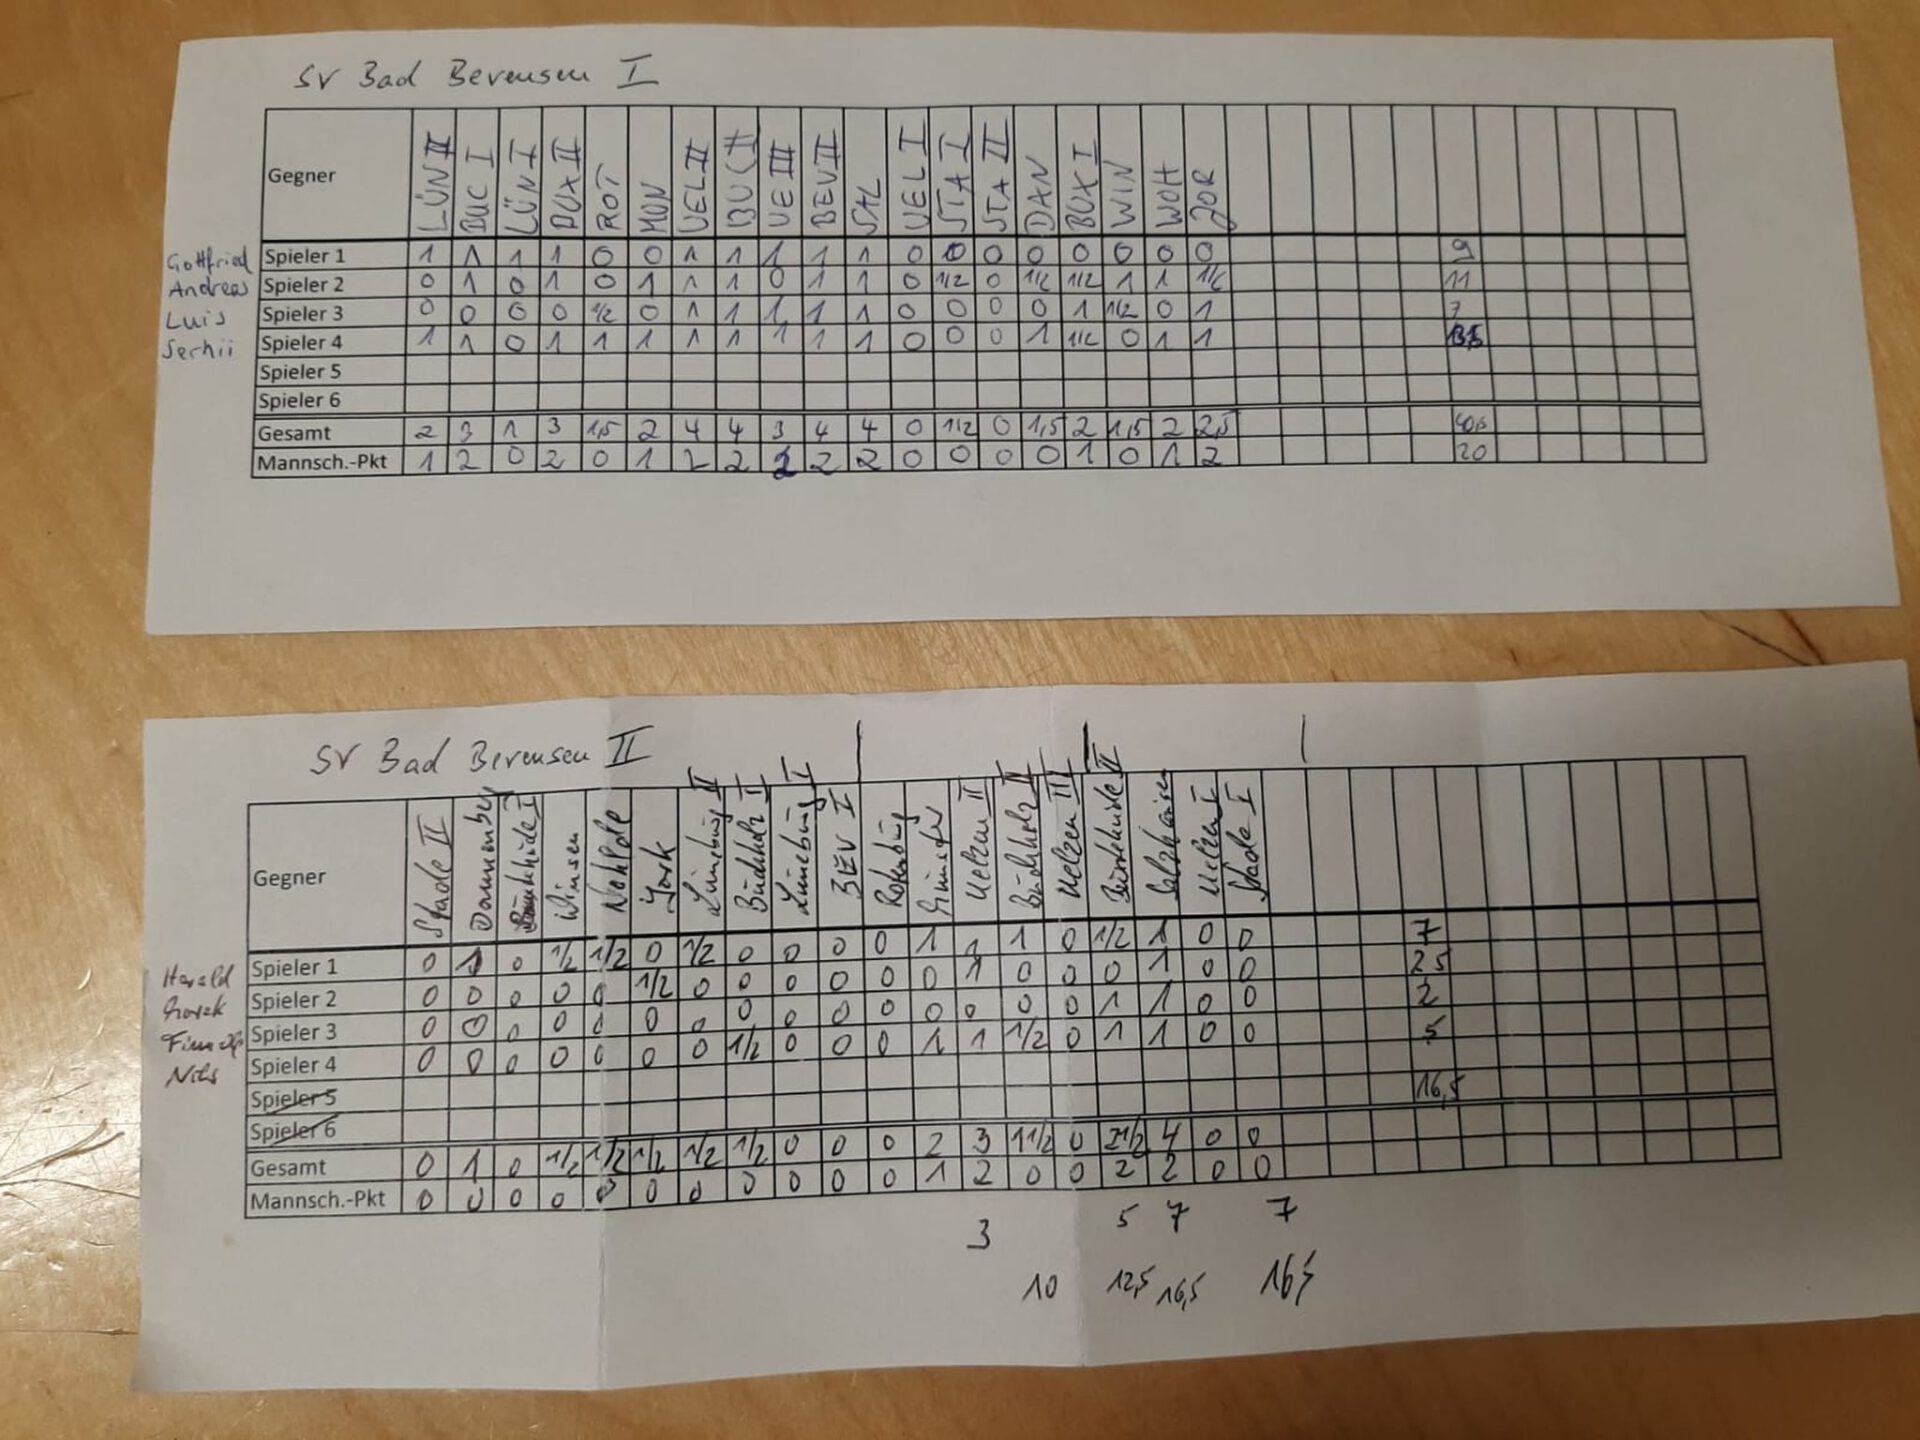 SV Bad Bevensen I
Gegner LÜN II BUC I LÜN I BUX II ROT MUN UEL II BUC II UE III BEV II SAL UEL I STA I STA II DAN BUX I WIN WOH JOR
Gottfried Spieler 1 1 1 1 1 0 0 1 1 1 1 1 0 0 0 0 0 0 0 0 9
Andreas Spieler 2 0 1 0 1 0 1 1 1 0 1 1 0 1/2 0 1/2 1/2 1 1 1/2 11
Luis Spieler 3 0 0 0 0 1/2 0 1 1 1 1 1 0 0 0 0 1 1/2 0 1 7
Serhii Spieler 4 1 1 0 1 1 1 1 1 1 1 1 0 0 0 1 1/2 0 1 1 13,5
Spieler 5
Spieler 6
Gesamt 2 3 1 3 1,5 2 4 4 3 4 4 0 1/2 0 1,5 2 1,5 2 2,5 40,5
Mannsch.-Pkt 1 2 0 2 0 1 2 2 2 2 2 0 0 0 0 1 0 1 2 20
SV Bad Bevensen II
Gegner Stade II Dannenberg Buxtehude I Winsen Wohlde Jork Lüneburg II Buchholz I Lüneburg I BEV I Rotenburg Munster Uelzen II Buchholz II Uelzen III Buxtehude II Salzhausen Uelzen I Stade I
Harald Spieler 1 0 1 0 1/2 1/2 0 1/2 0 0 0 0 1 1 1 0 1/2 1 0 0 7
Spieler 2 0 0 0 0 0 1/2 0 0 0 0 0 0 1 0 0 0 1 0 0 2,5
Spieler 3 0 0 0 0 0 0 0 0 0 0 0 0 0 0 0 1 1 0 0 2
Nils Spieler 4 0 0 0 0 0 0 0 1/2 0 0 0 1 1 1/2 0 1 1 0 0 5
Spieler 5 16,5
Spieler 6
Gesamt 0 1 0 1/2 1/2 1/2 1/2 1/2 0 0 0 2 3 1 1/2 0 2 1/2 4 0 0
Mannsch.-Pkt 0 0 0 0 0 0 0 0 0 0 0 1 2 0 0 2 2 0 0
3 5 7 7
10 12,5 16,5 16,5